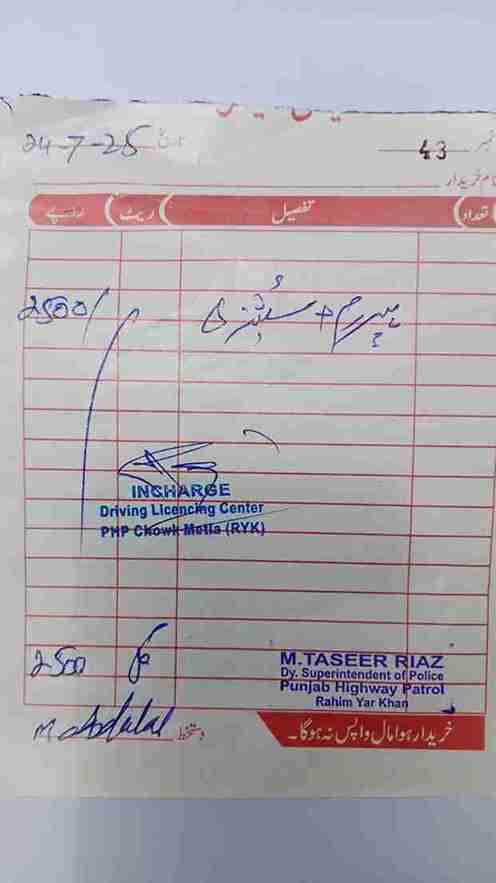 24-7-25 نمبر 43
نام خریدار
تعداد تفصیل ریٹ روپے
پیپر رم + سٹیشنری 2500/
INCHARGE
Driving Licencing Center
PHP Chowk Metla (RYK)
M.TASEER RIAZ
Dy. Superintendent of Police
Punjab Highway Patrol
Rahim Yar Khan
2500
خریدا ہوا مال واپس نہ ہوگا۔
دستخط